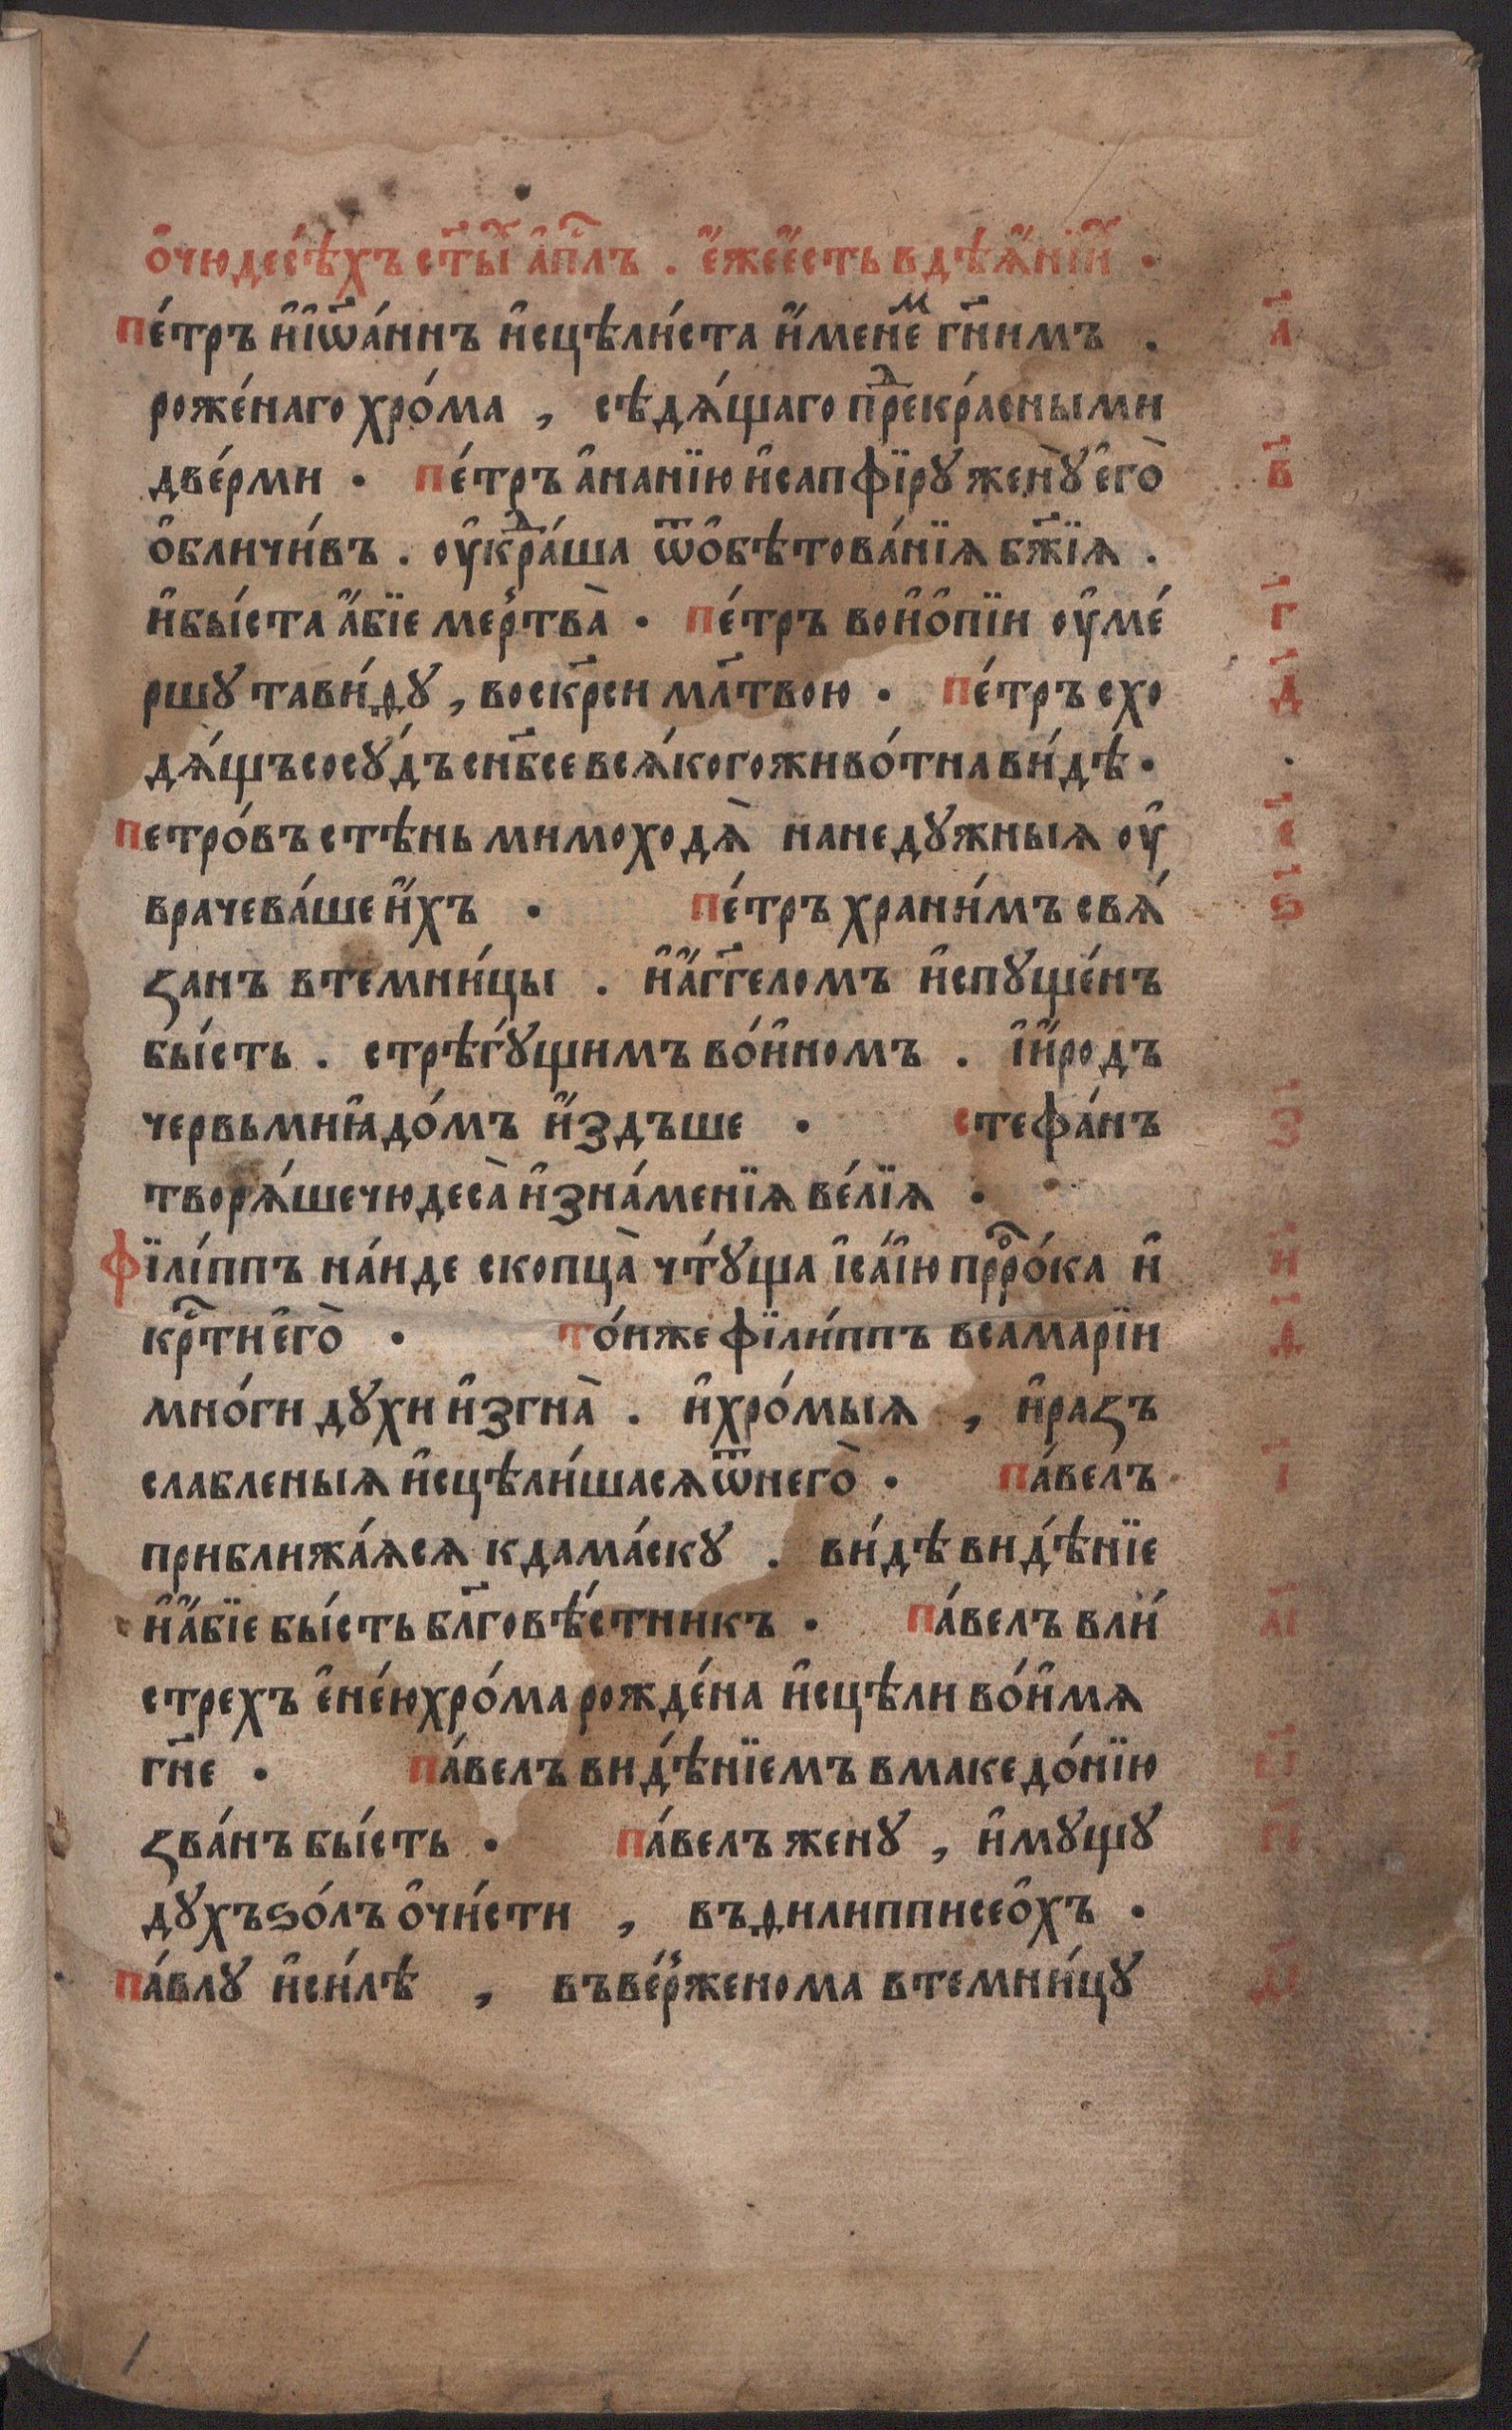 ѻ҆чюдесѣ́хъ ст҃ы́х а҆пⷭ҇лъ . є҆́жеє҆́сть в дѣѧ҆́нїи҆х .
пе́тръ и҆і҆ѡа́ннъ и҆сцѣли́ста и҆́менеⷨ гн҃имъ . а҃
роже́наго хро́ма , сѣдѧ́щаго преⷣкра́сными
две́рми . пе́тръ а҆нані́ю и҆сапфі́рꙋ женꙋ̀ є҆го̀ в҃
ѻ҆бличи́въ . оу҆краⷣша ѿѻ҆бѣтова́нїѧ бж҃їѧ .
и҆бы́ста а҆́бїе ме́ртва̀ . пе́тръ во и҆ѻ҆пі́и оу҆ме́ г҃
ршꙋ тави́ѳꙋ , воскр҃си мл҃твою . пе́тръ схо д҃
дѧ́щъ сосꙋ́дъ снб҃се всѧ́кого живо́тна ви́дѣ .
петро́въ стѣнь мимоходѧ̀ на недꙋжныѧ оу҆ є҃
врачева́ше и҆́хъ . пе́тръ храни́мъ свѧ́ ѕ҃
ꙁанъ в темни́цы . и҆а҆́гг҃еломъ и҆спꙋще́нъ
бы́сть . стрѣгꙋ́щимъ во́и҆номъ . і҆и҆́родъ
червьми ꙗ҆до́мъ и҆́здъше . стефа́нъ з҃
творѧ́ше чюдеса̀ и҆зна́менїѧ ве́лїѧ .
фїлі́ппъ на́иде скопца̀ чтꙋ́ща і҆са́і҆ю прⷪ҇ро́ка и҆ и҃
крⷭ҇ти є҆го̀ . то́иже фїли́ппъ в самарі́и ѳ҃
мно́ги дꙋхи и҆згна̀ . и҆хро́мыѧ , и҆раꙁъ
слабленыѧ и҆сцѣли́шасѧ ѿнего̀ . па́велъ і҃
приближа́ѧсѧ к дама́скꙋ . ви́дѣ видѣ́нїе
и҆а҆́бїе бы́сть блг҃овѣ́стникъ . па́велъ в ли́ аі҃
стрехъ є҆не́ю хро́ма рожде́на и҆сцѣли во́и҆мѧ
гн҃е . па́велъ видѣ́нїемъ в македо́нїю ві҃
ꙁва́нъ бы́сть . па́велъ женꙋ , и҆мꙋщꙋ гі҃
дꙋхъ ѕо́лъ ѻ҆чи́сти , въ ѳилипписеѻ҆хъ .
па́влꙋ и҆си́лѣ , въве́рженома в темни́цꙋ ді҃